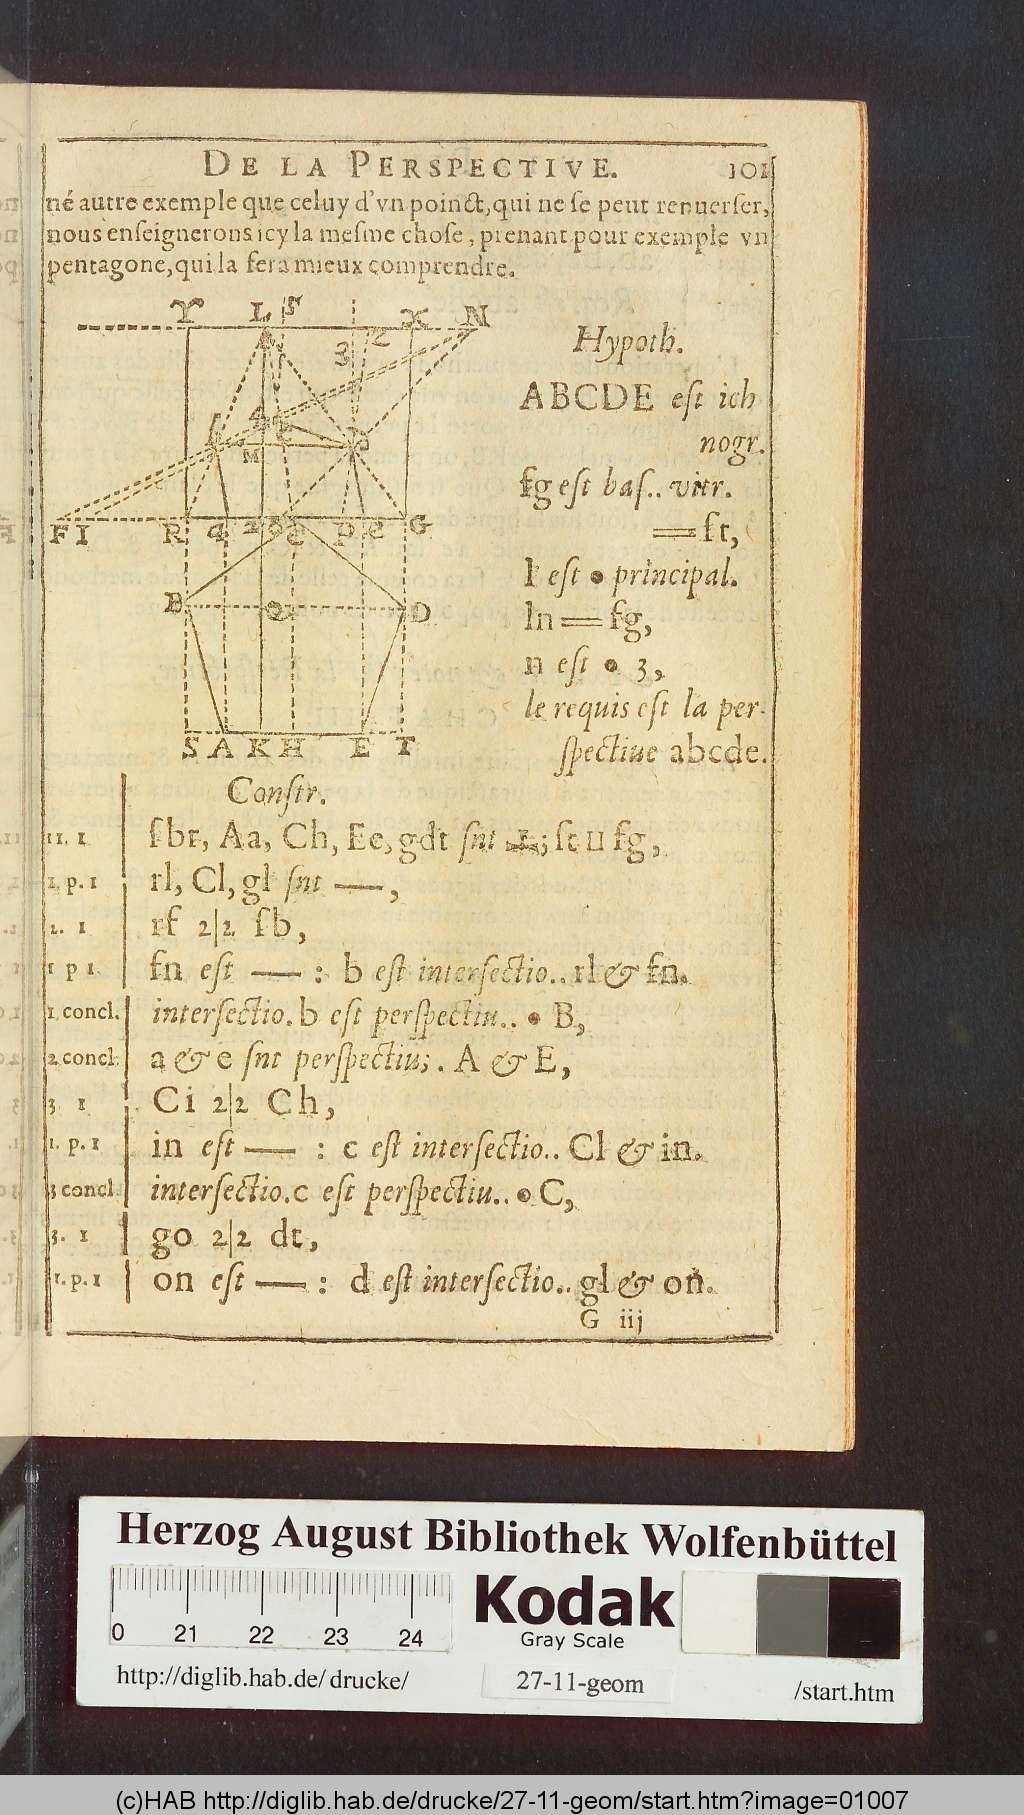 DE LA PERSPECTIVE. 101
né autre exemple que celuy d'vn poinct, qui ne se peut renuerser,
nous enseignerons icy la mesme chose, prenant pour exemple vn
pentagone, qui la fera mieux comprendre.
Y L 5 X N
3 2
4
M
F I R q 2 3 c P e G
B Q D
S A K H E T
Hypoth.
ABCDE est ich
nogr.
fg est bas.. vitr.
═ st,
l est • principal.
ln ═ fg,
n est • 3,
le requis est la per-
spectiue abcde.
Constr.
11. 1 sbr, Aa, Ch, Ee, gdt snt ⊥; st II fg,
1. p. 1 rl, Cl, gl snt —,
2. 1 rf 2|2 sb,
1 p 1 fn est — : b est intersectio.. rl & fn.
1 concl. intersectio. b est perspectiu.. • B,
2 concl. a & e snt perspectiu;. A & E,
3 1 Ci 2|2 Ch,
1. p. 1 in est — : c est intersectio.. Cl & in.
3 concl. intersectio. c est perspectiu.. • C,
3. 1 go 2|2 dt,
1. p. 1 on est — : d est intersectio.. gl & on.
G iij
Herzog August Bibliothek Wolfenbüttel
Kodak
Gray Scale
0 21 22 23 24
http://diglib.hab.de/drucke/ 27-11-geom /start.htm
(c)HAB http://diglib.hab.de/drucke/27-11-geom/start.htm?image=01007